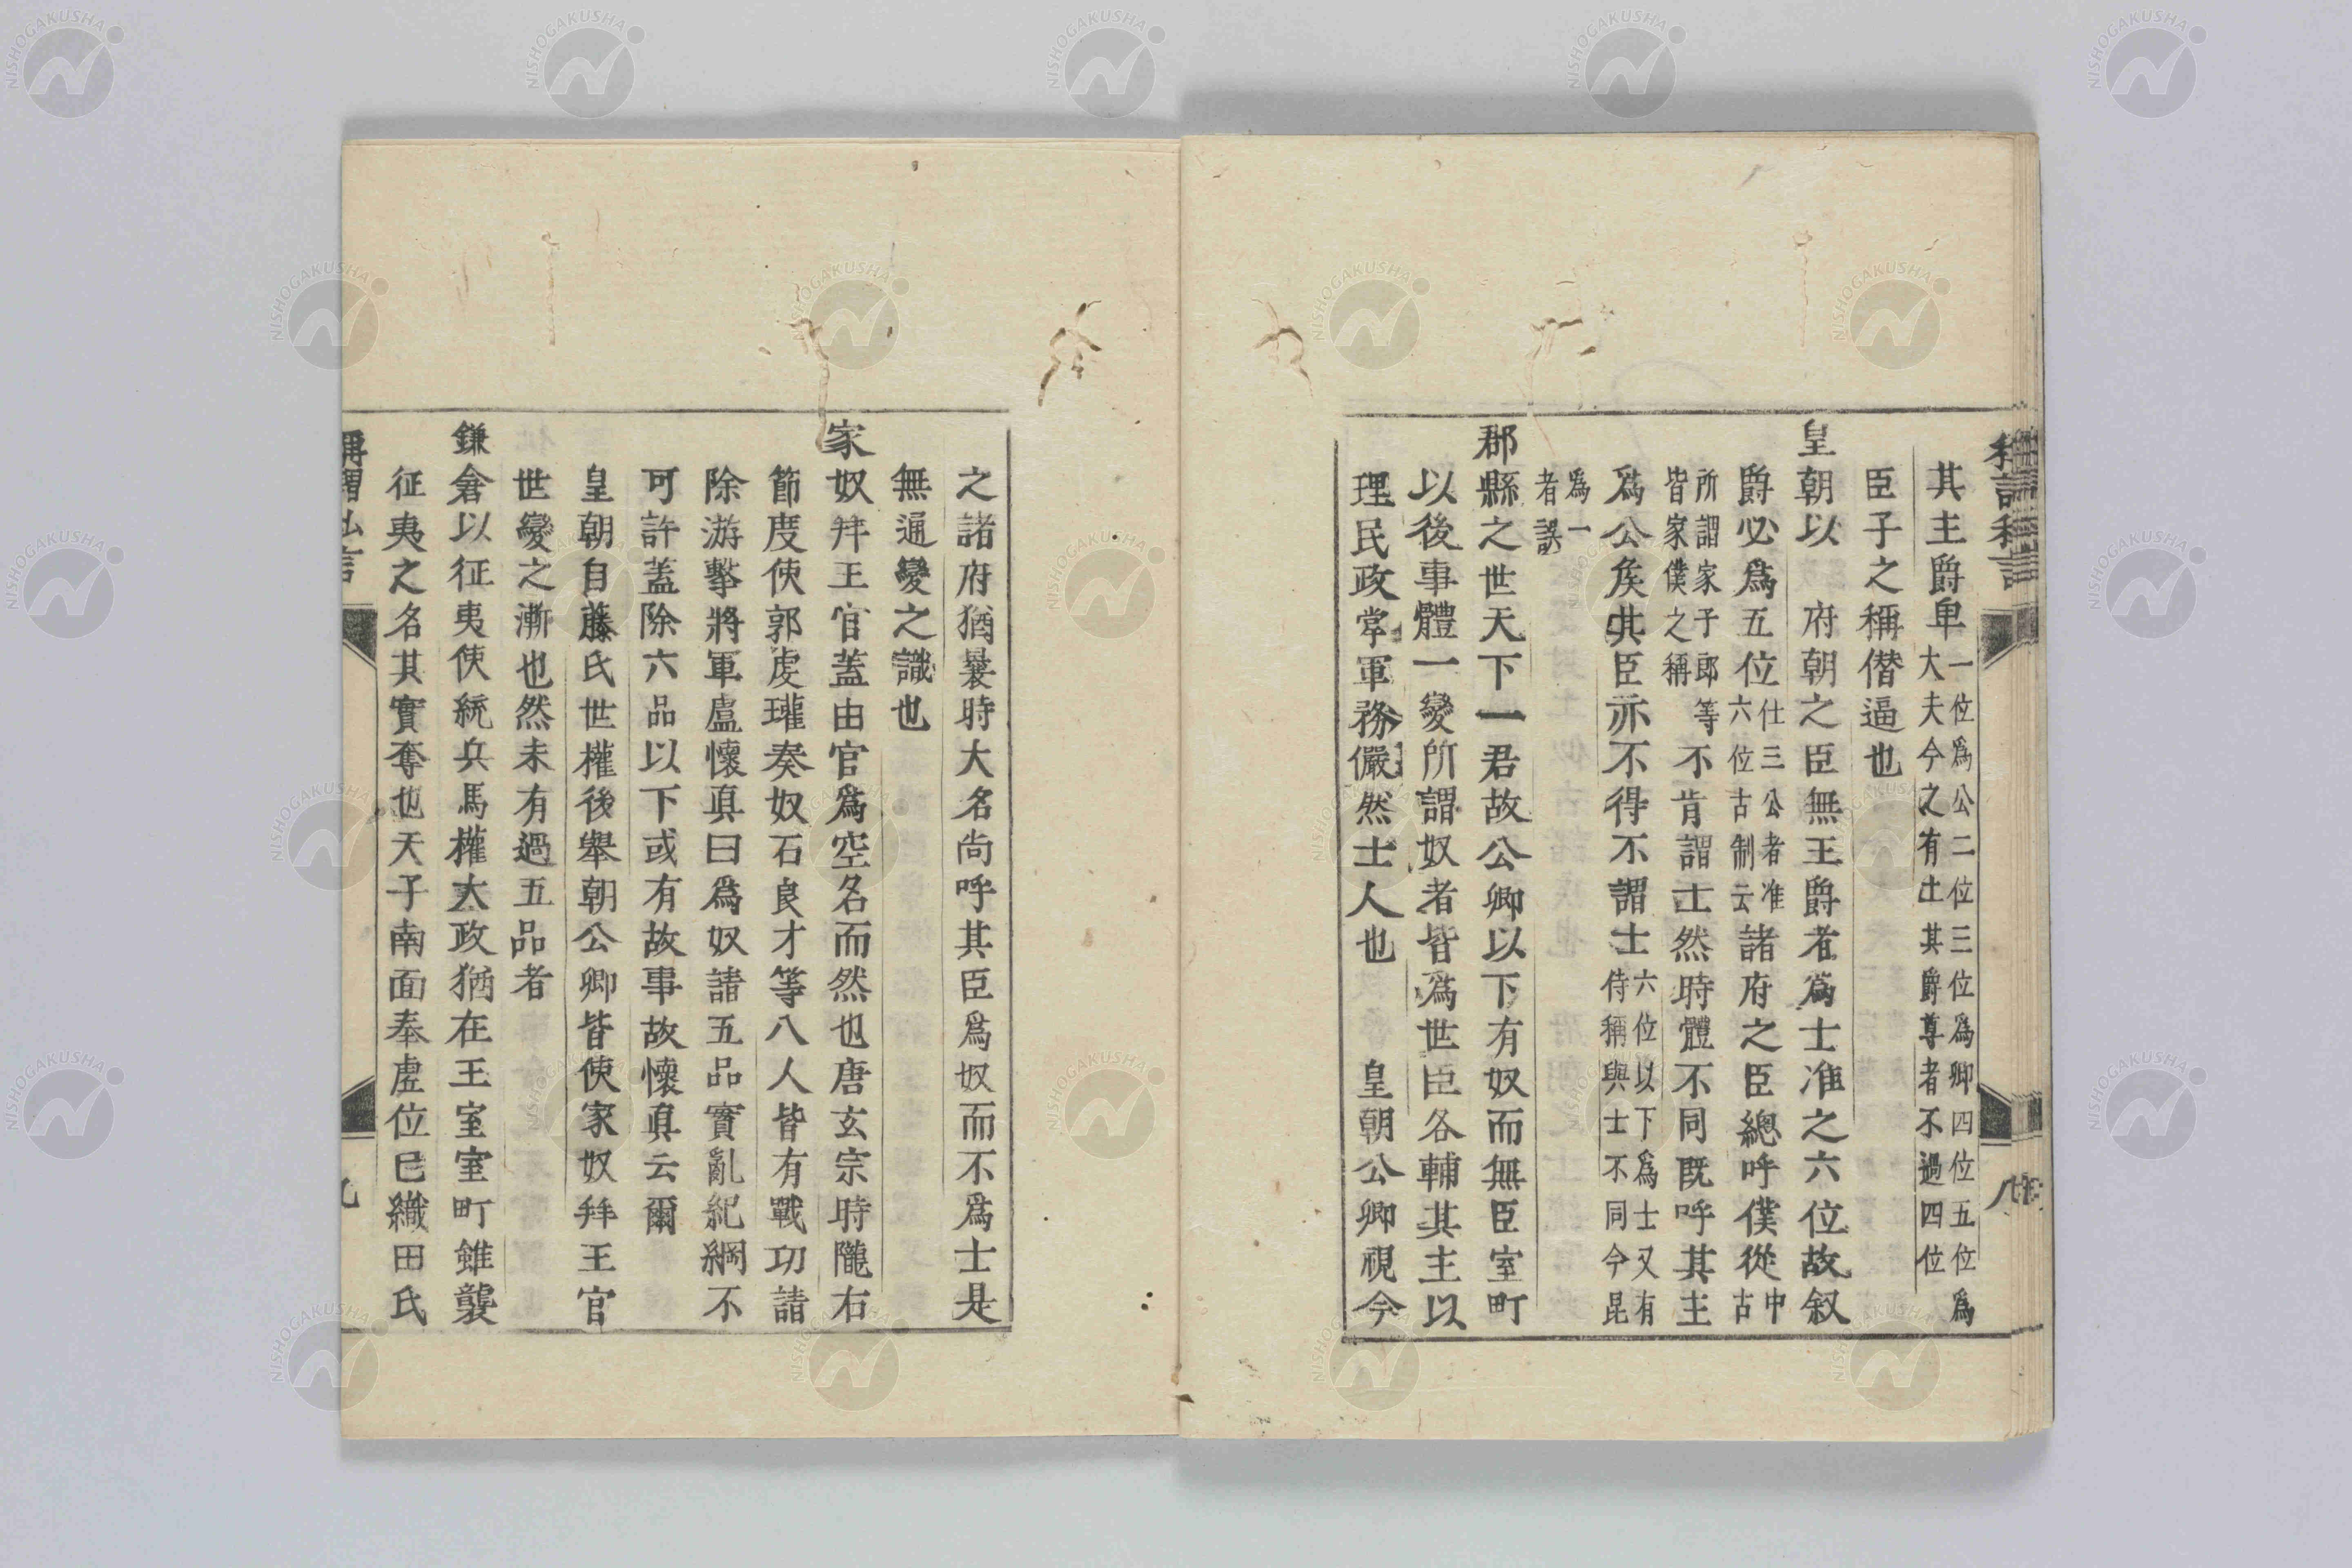 其主爵卑一位爲公二位三位爲卿四位五位爲大夫今之有土其爵尊者不過四位
臣子之稱僭逼也
皇朝以 府朝之臣無王爵者爲士准之六位故叙
爵必爲五位仕三公者准六位古制云諸府之臣總呼僕從中古
所謂家子郎等皆家僕之稱不肯謂士然時體不同既呼其主
爲公矦其臣亦不得不謂士六位以下爲士又有侍稱與士不同今昆
爲一者誤
郡縣之世天下一君故公卿以下有奴而無臣室町
以後事體一變所謂奴者皆爲世臣各輔其主以
理民政掌軍務儼然士人也 皇朝公卿視今
之諸府猶曩時大名尚呼其臣爲奴而不爲士是
無通變之識也
家奴拜王官蓋由官爲空名而然也唐玄宗時隴右
節度使郭虔瓘奏奴石良才等八人皆有戰功請
除游擊將軍盧懷真曰爲奴請五品實亂紀綱不
可許蓋除六品以下或有故事故懷真云爾
皇朝自藤氏世權後舉朝公卿皆使家奴拜王官
世變之漸也然未有過五品者
鎌倉以征夷使統兵馬權大政猶在王室室町雖襲
征夷之名其實奪也天子南面奉虛位已織田氏
稱謂私言
九
八
NISHOGAKUSHA